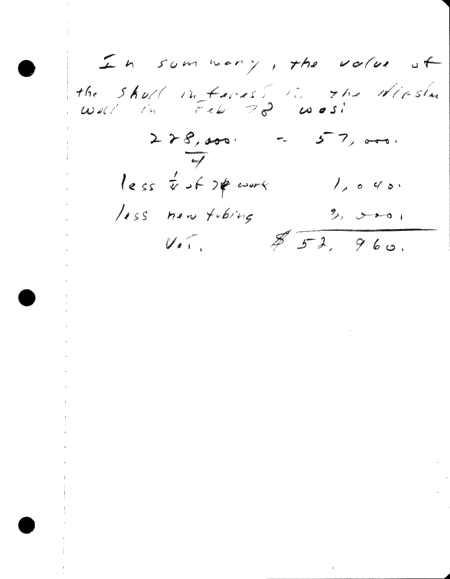 In summary, the value of
the Shull interest in the
well in Feb 78 was:
228,000. = 57,000.
4
less 1/4 of work 1,040.
less new tubing 3,000.
$ 52,960.